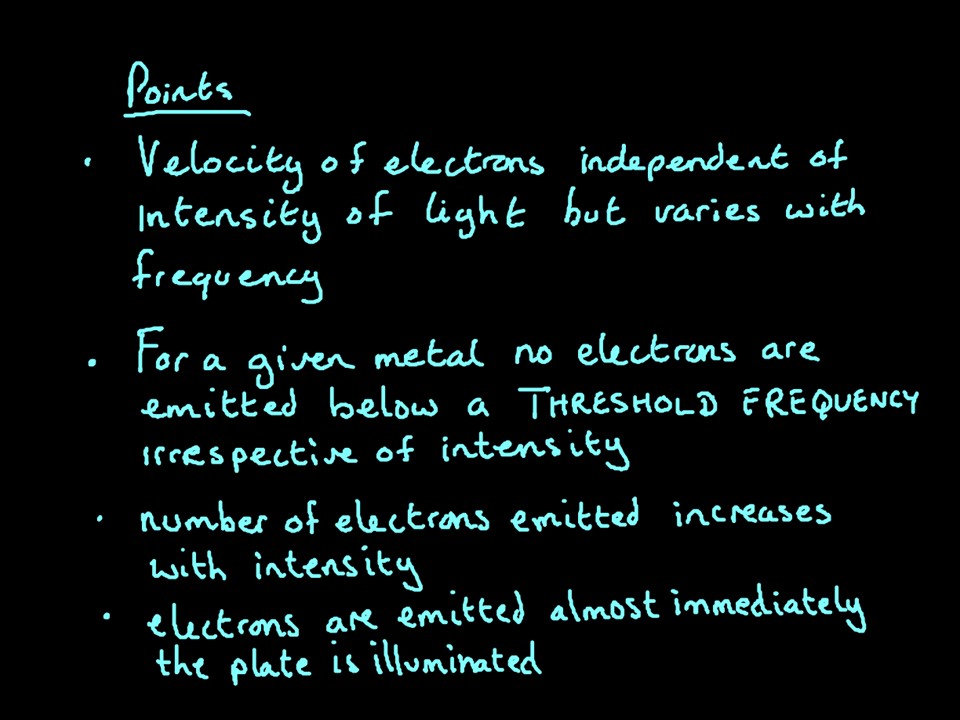 Points
• Velocity of electrons independent of
intensity of light but varies with
frequency
• For a given metal no electrons are
emitted below a THRESHOLD FREQUENCY
irrespective of intensity
• number of electrons emitted increases
with intensity
• electrons are emitted almost immediately
the plate is illuminated